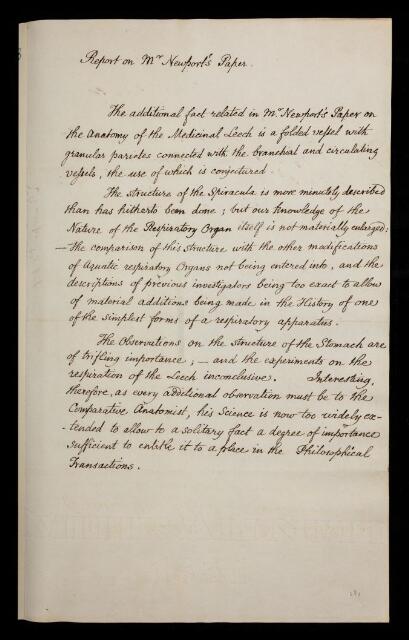 Report on Mr Newport's Paper.
The additional fact related in Mr Newport's Paper on
the Anatomy of the Medicinal Leech is a folded vessel with
granular parietes connected with the branchial and circulating
vessels, the use of which is conjectured.
The structure of the Spiracula is more minutely described
than has hitherto been done; but our knowledge of the
Nature of the Respiratory Organ itself is not materially enlarged;
— the comparison of this structure with the other modifications
of Aquatic respiratory Organs not being entered into, and the
descriptions of previous investigators being too exact to allow
of material additions being made in the History of one
of the simplest forms of a respiratory apparatus.
The Observations on the structure of the Stomach are
of trifling importance; — and the experiments on the
respiration of the Leech inconclusive. Interesting,
therefore, as every additional observation must be to the
Comparative Anatomist, his Science is now too widely ex-
-tended to allow to a solitary fact a degree of importance
sufficient to entitle it to a place in the Philosophical
Transactions.